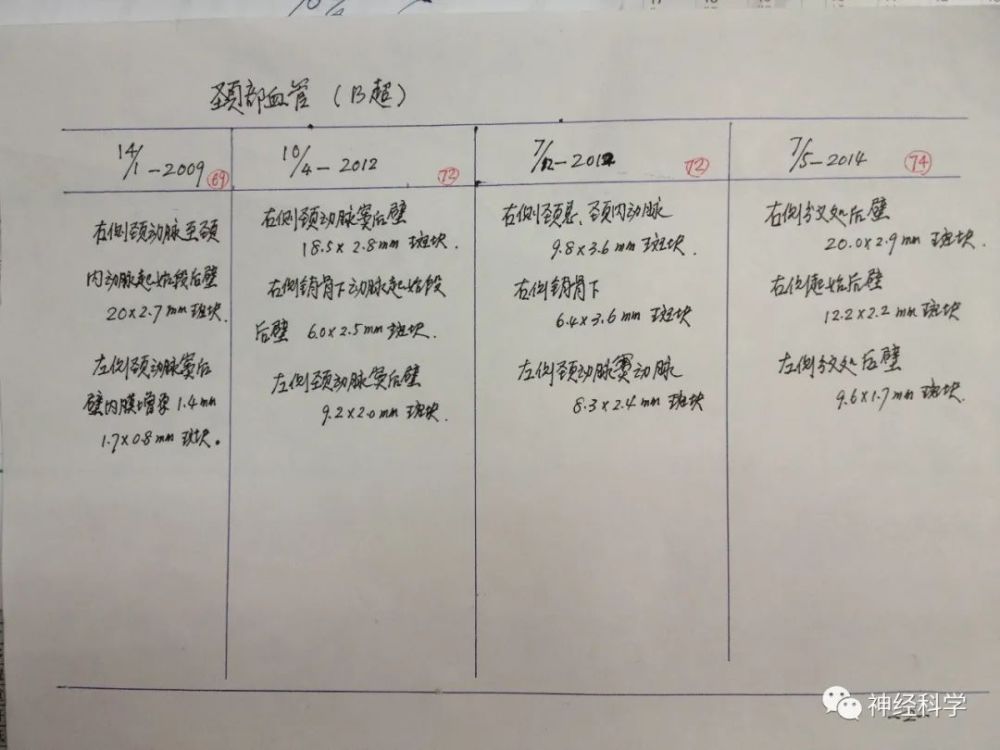 颈部血管（B超）
14/1-2009 69
右侧颈动脉至颈
内动脉起始段后壁
20×2.7mm斑块.
左侧颈动脉窦后
壁内膜增厚1.4mm
1.7×0.8mm斑块。
10/4-2012 72
右侧颈动脉窦后壁
18.5×2.8mm斑块.
右侧锁骨下动脉起始段
后壁 6.0×2.5mm斑块.
左侧颈动脉窦后壁
9.2×2.0mm斑块.
7/12-2012 72
右侧颈总、颈内动脉
9.8×3.6mm斑块.
右侧锁骨下
6.4×3.6mm斑块
左侧颈动脉窦动脉
8.3×2.4mm斑块
7/5-2014 74
右侧分叉处后壁
20.0×2.9mm斑块.
右侧起始后壁
12.2×2.2mm斑块
左侧分叉处后壁
9.6×1.7mm斑块.
神经科学
-2-